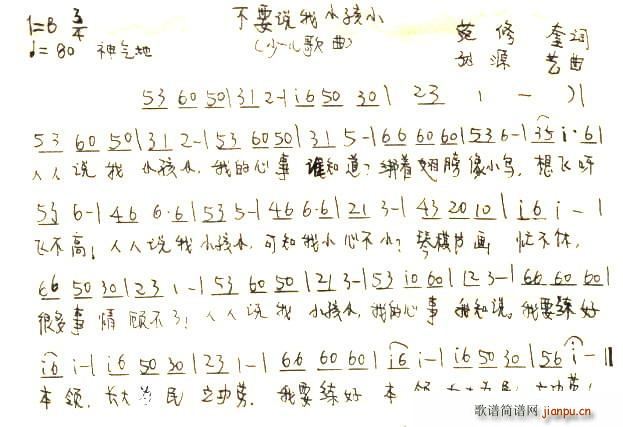 不要说我小孩小
1=B 3/4
(少儿歌曲)
♩=80 神气地
范修奎词
源艺曲
53 60 50 | 31 2- | i6 50 30 | 23 1 - ) |
53 60 50 | 31 2- | 53 60 50 | 31 5- | 66 60 60 | 53 6- | 35 i· 6 |
人人说我小孩小,我的心事谁知道?绑着翅膀像小鸟,想飞呀
53 6- | 46 6·6 | 53 5- | 46 6·6 | 21 3- | 43 20 10 | i6 i - |
飞不高!人人说我小孩小,可知我小心不小?琴棋书画忙不休,
66 50 30 | 23 1- | 53 60 50 | 21 3- | 53 i0 60 | 12 3- | 66 60 60 |
很多事情顾不了!人人说我小孩小,我的心事我知说。我要练好
i6 i- | i6 50 30 | 23 1- | 66 60 60 | i6 i- | i6 50 30 | 56 i- ‖
本领,长大为民立功劳。我要练好本领
歌谱简谱网 jianpu.cn